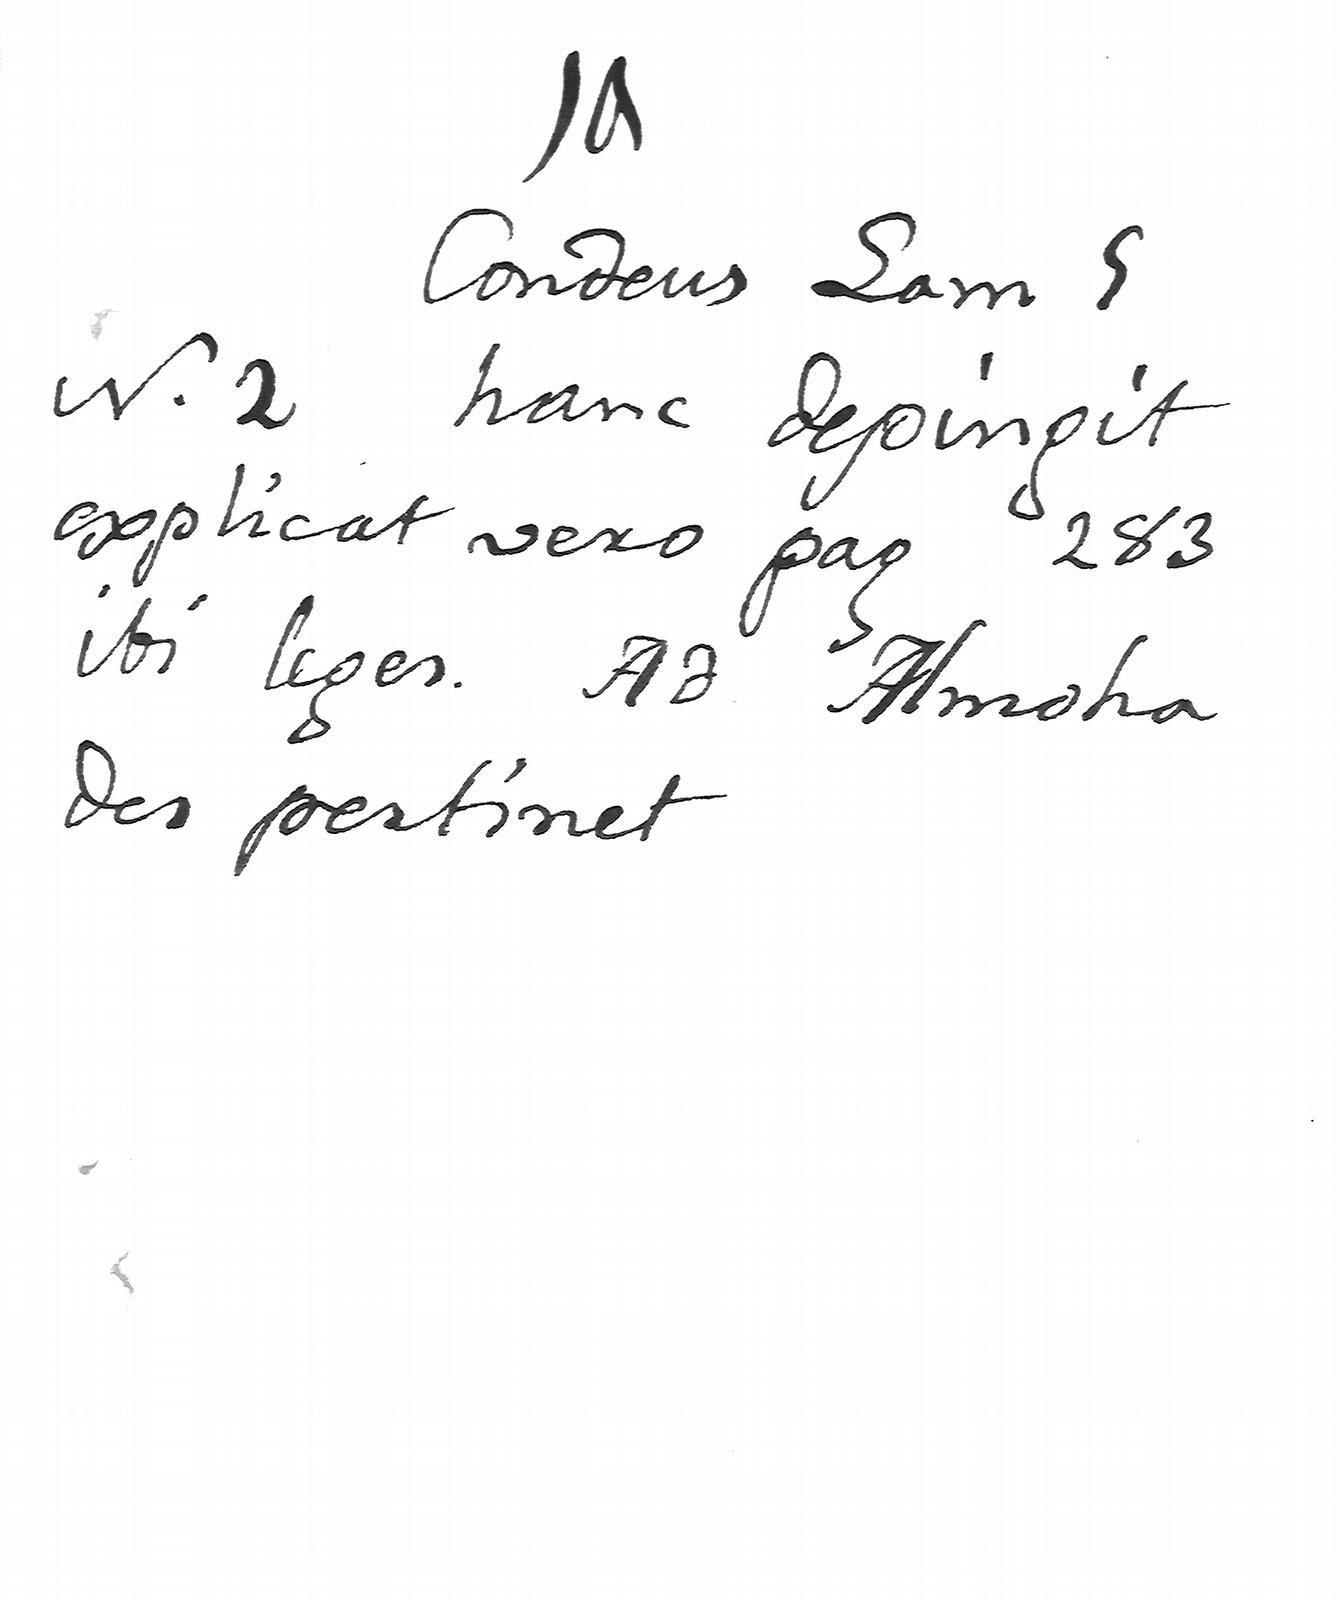 Condeus Lam 5
N. 2 hanc depingit
explicat vero pag 283
ibi leges. Ad Almoha
des pertinet